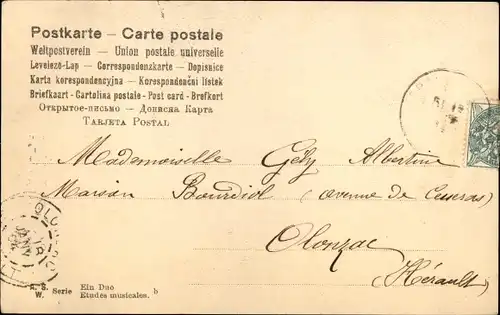 Postkarte – Carte postale
Weltpostverein – Union postale universelle
Levelezo-Lap – Correspondenzkarte – Dopisnice
Karta korespondencyjna – Korespondenční listek
Briefkaart - Cartolina postale - Post card - Brefkort
Открытое-письмо – Дописна Карта
Tarjeta Postal
Mademoiselle Gély Albertine
Maison Bourdiol (avenue de Cesseras)
Olonzac
(Hérault)
OLONZAC
R. S. Serie Ein Duo b
W. Etudes musicales.